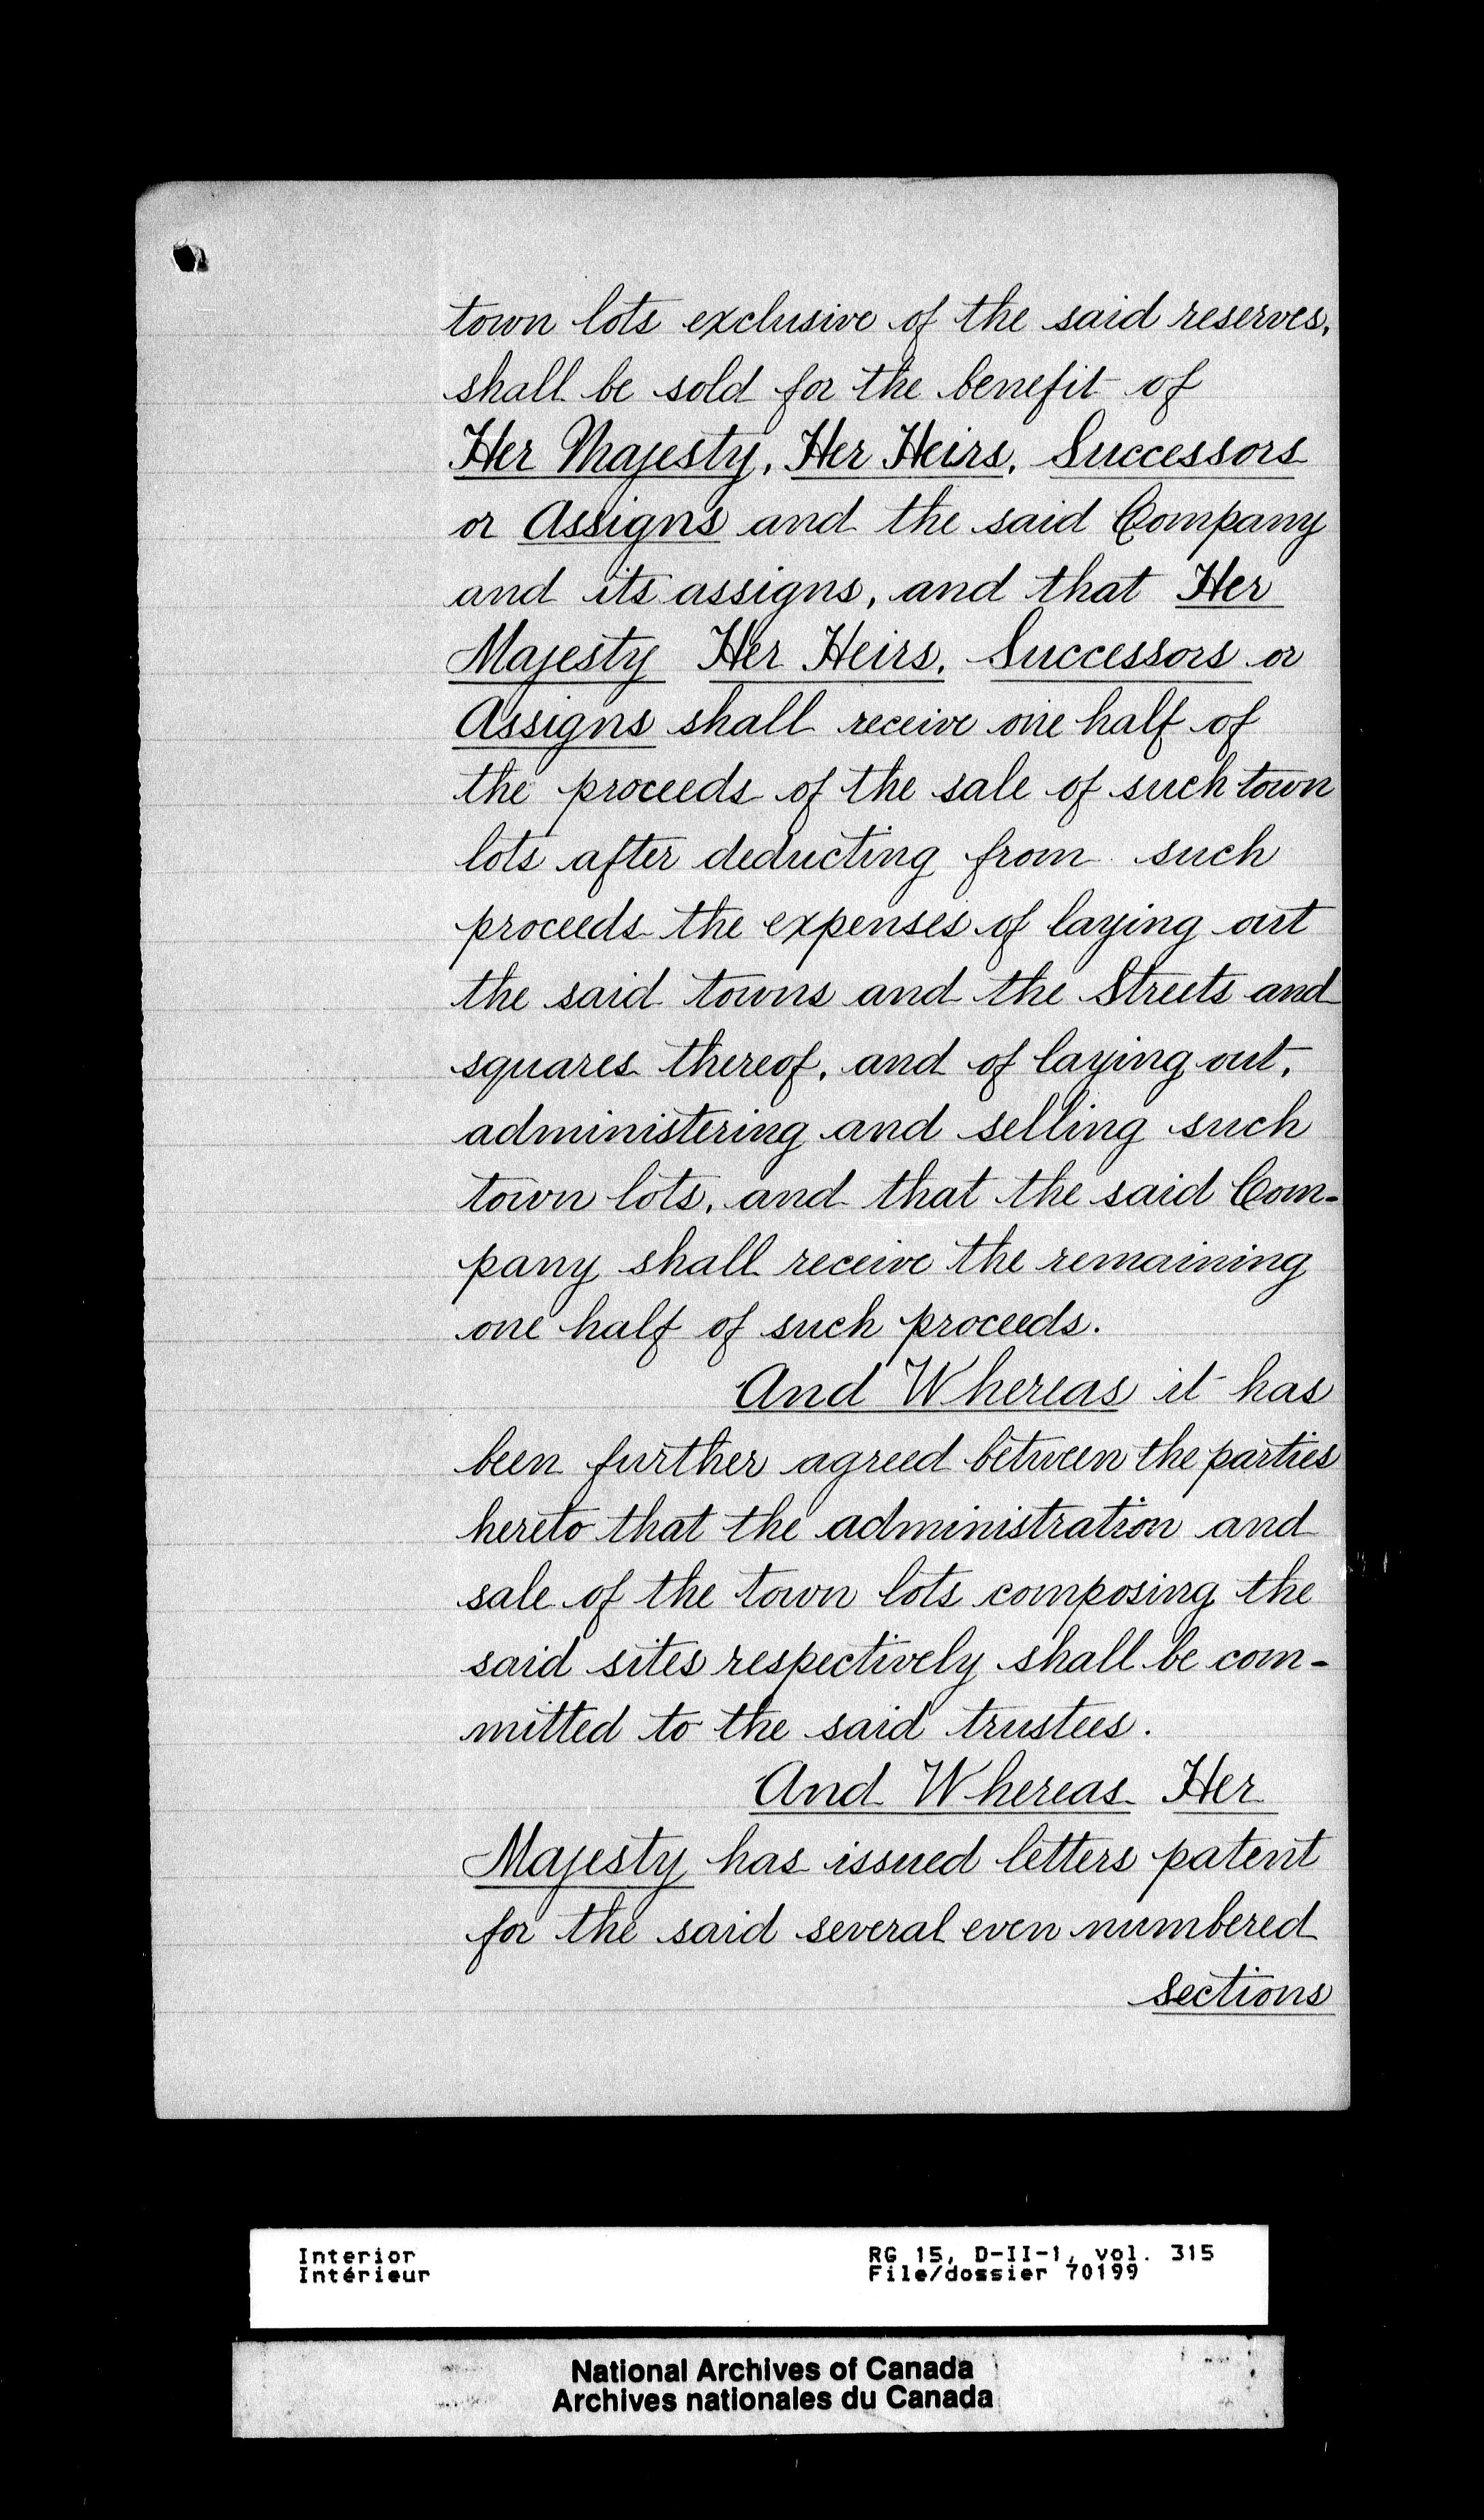 town lots exclusive of the said reserves,
shall be sold for the benefit of
Her Majesty, Her Heirs, Successors
or Assigns and the said Company
and its assigns, and that Her
Majesty Her Heirs, Successors or
Assigns shall receive one half of
the proceeds of the sale of such town
lots after deducting from such
proceeds the expenses of laying out
the said towns and the Streets and
squares thereof, and of laying out,
administering and selling such
town lots, and that the said Com-
pany shall receive the remaining
one half of such proceeds.
And Whereas it has
been further agreed between the parties
hereto that the administration and
sale of the town lots composing the
said sites respectively shall be com-
mitted to the said trustees.
And Whereas Her
Majesty has issued letters patent
for the said several even numbered
sections
Interior
Intérieur
RG 15, D-II-1, vol. 315
File/dossier 70199
National Archives of Canada
Archives nationales du Canada